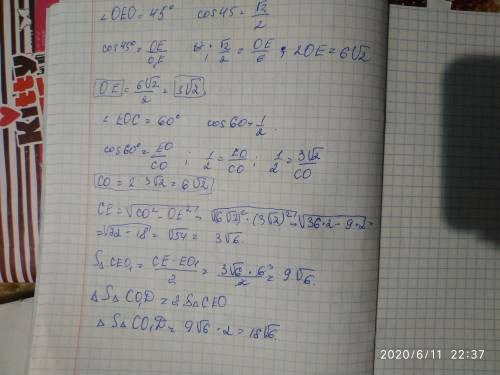 ∠OEO = 45° cos45 = √2/2
cos45° = OE/O₁E √2/2 = OE/6 ; 2OE = 6√2
OE = 6√2/2 = 3√2
∠EOC = 60° cos60 = 1/2
cos60° = EO/CO ; 1/2 = EO/CO ; 1/2 = 3√2/CO
CO = 2 · 3√2 = 6√2
CE = √CO² - OE² = √(6√2)² - (3√2)² = √36·2 - 9·2 =
= √72 - 18 = √54 = 3√6.
S△CEO₁ = CE · EO₁/2 = 3√6 · 6³/2 = 9√6.
△ S△CO₁D = 2 S△CEO
△ S△CO₁D = 9√6 · 2 = 18√6.
Kitty
2020/6/11 22:37